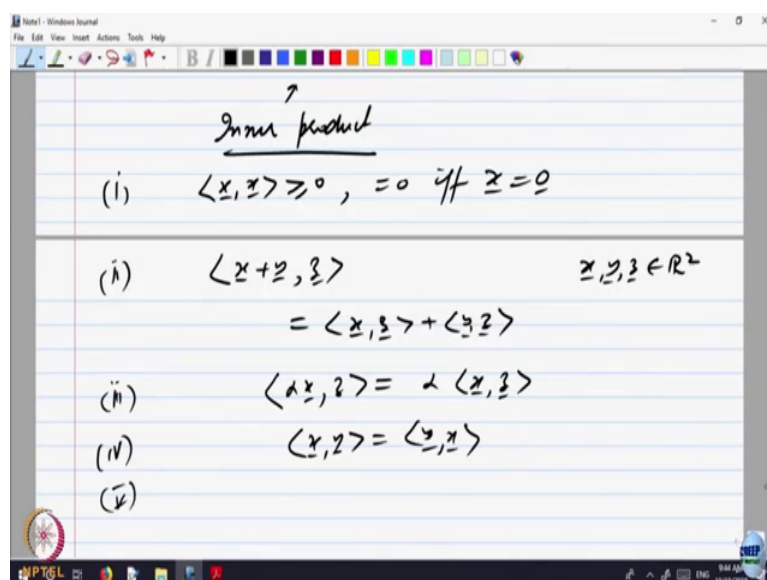 Note1 - Windows Journal
File Edit View Insert Actions Tools Help
B I
Inner product
(i) <x, x> ≥ 0, = 0 iff x = 0
(ii) <x + y, z> x, y, z ∈ R²
= <x, z> + <y, z>
(iii) <αx, z> = α <x, z>
(iv) <x, y> = <y, x>
(v)
NPTEL
ENG 9:44 AM